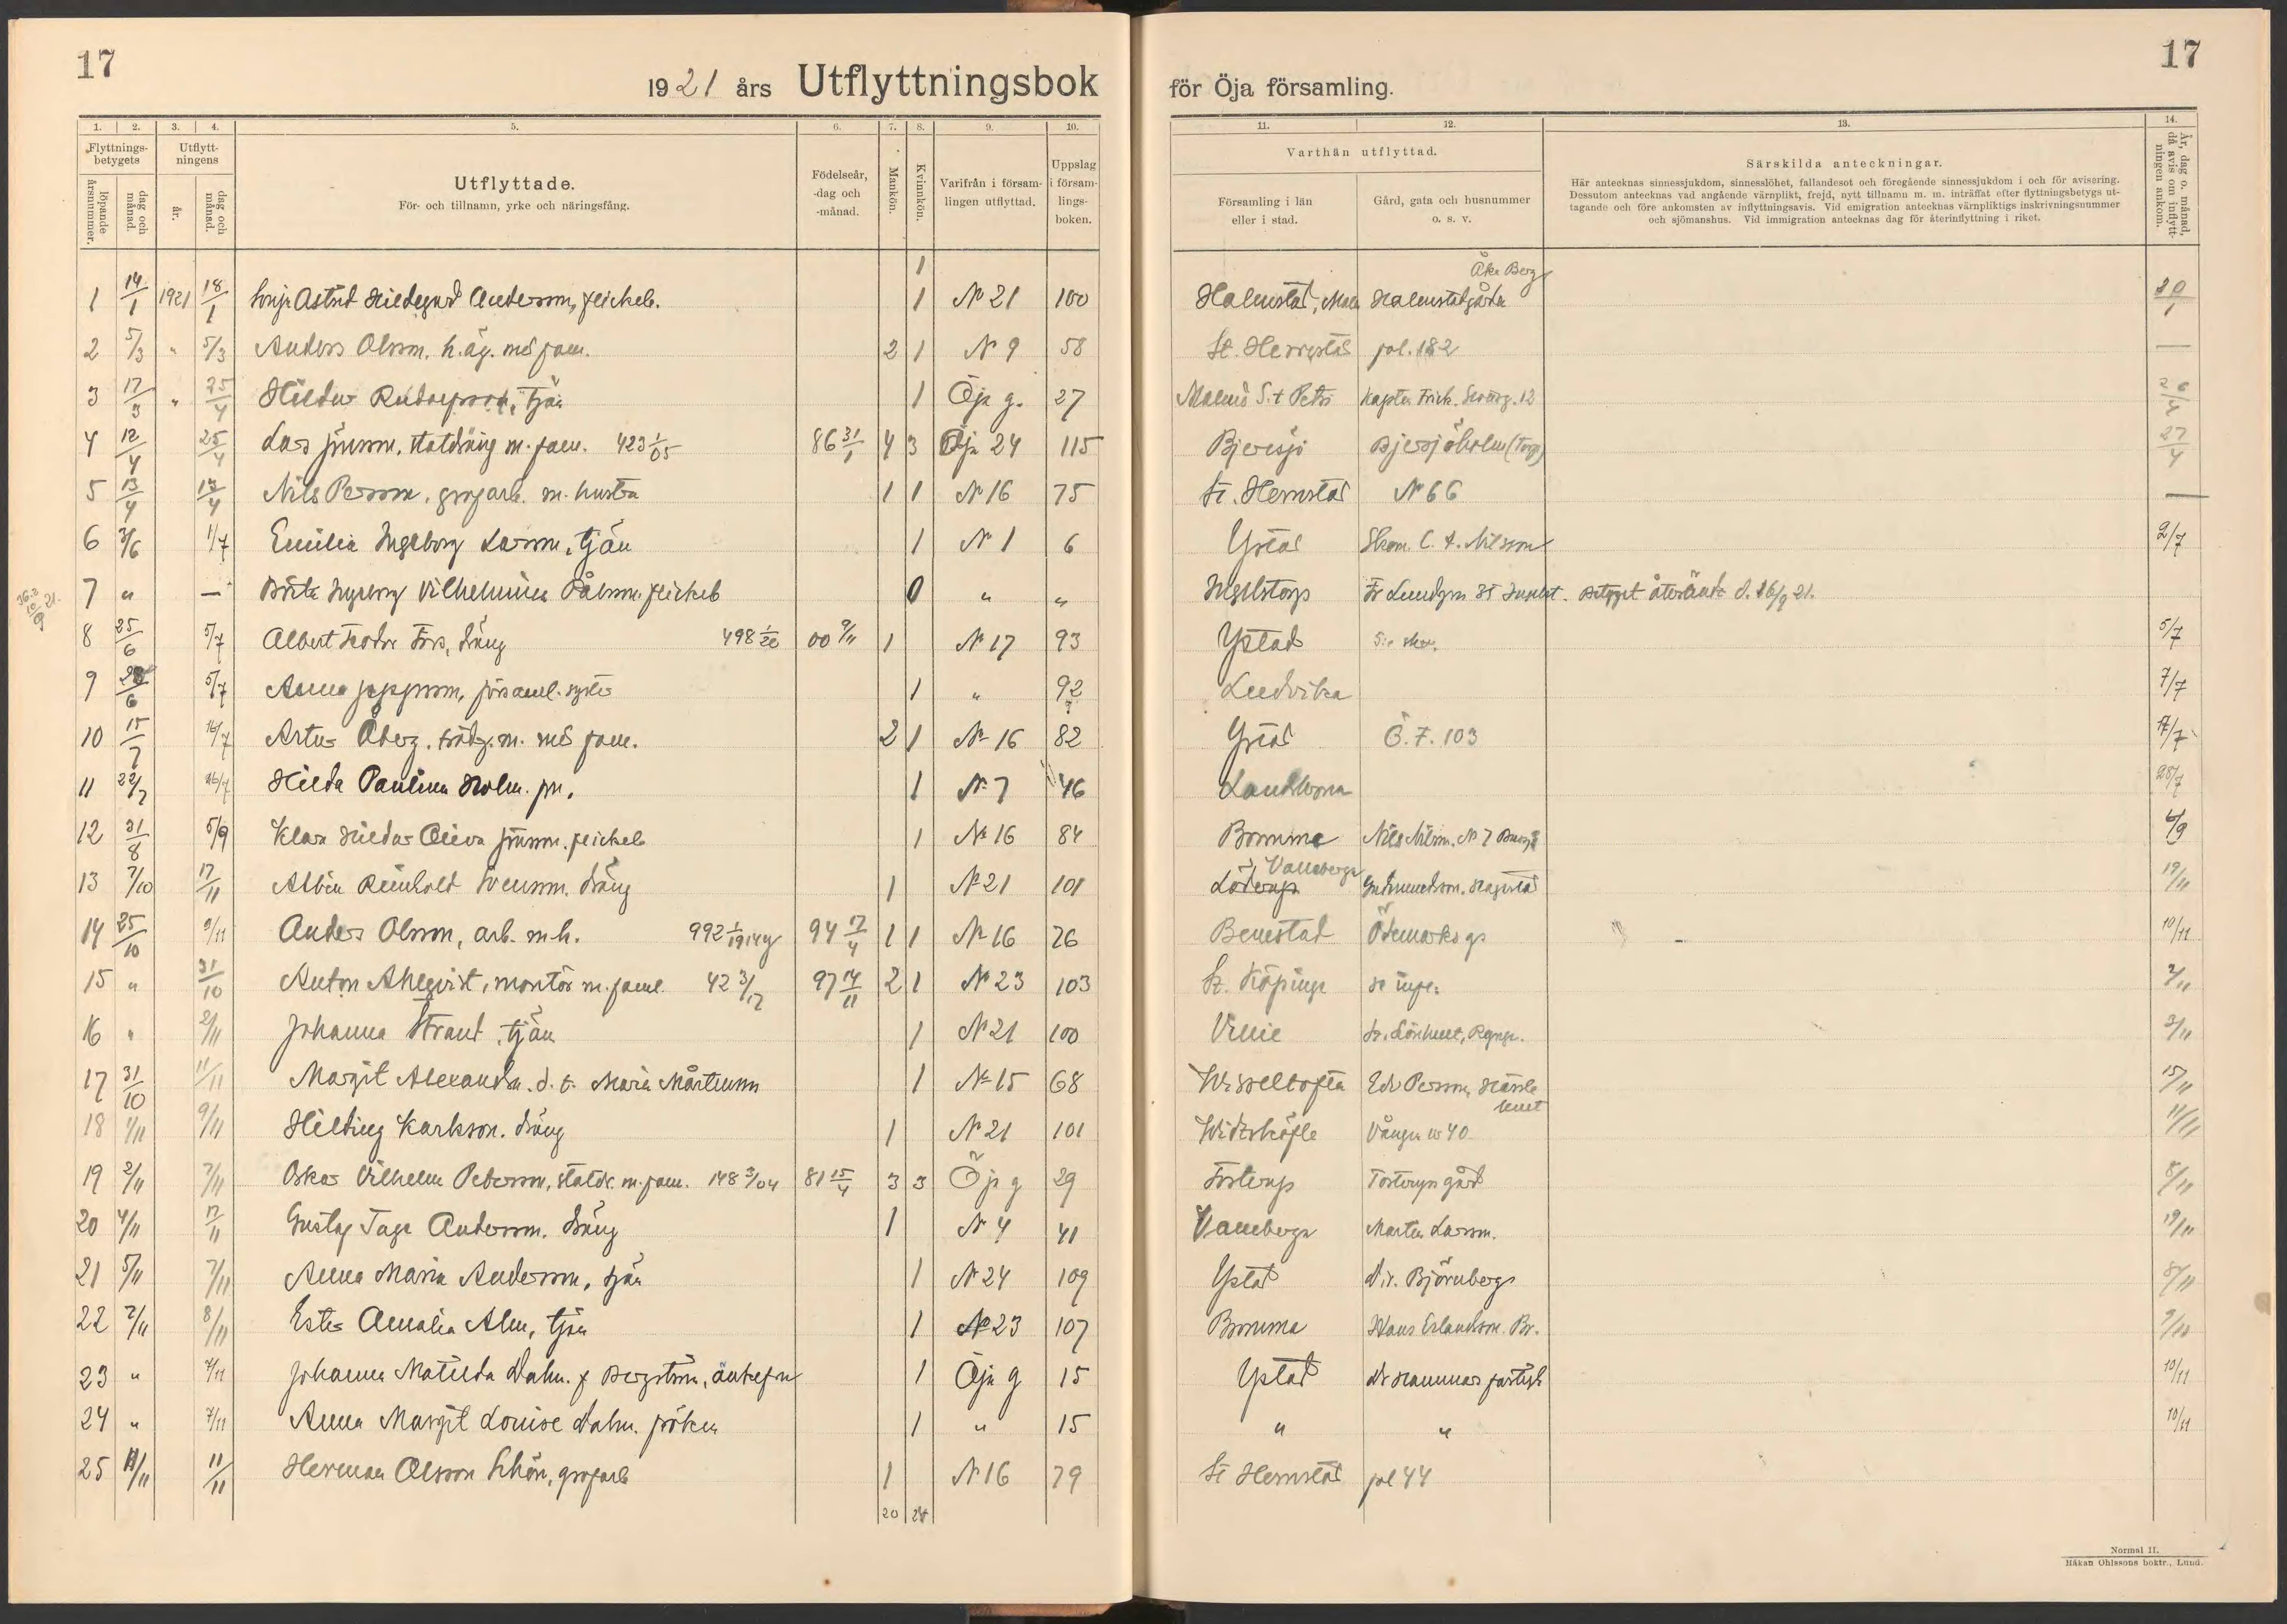 17
1921 års Utflyttningsbok
för Öja församling.
17
1. 2. 3. 4. 5. 6. 7. 8. 9. 10. 11. 12. 13. 14.
Flyttningsbetygets
löpande årsnummer.
dag och månad.
Utflyttningens
år.
dag och månad.
Utflyttade.
För- och tillnamn, yrke och näringsfång.
Födelseår, -dag och -månad.
Mankön.
Kvinnkön.
Varifrån i församlingen utflyttad.
Uppslag i församlingsboken.
Varthän utflyttad.
Församling i län eller i stad.
Gård, gata och husnummer o. s. v.
Särskilda anteckningar.
Här antecknas sinnessjukdom, sinnesslöhet, fallandesot och föregående sinnessjukdom i och för avisering.
Dessutom antecknas vad angående värnplikt, frejd, nytt tillnamn m. m. inträffat efter flyttningsbetygs ut-
tagande och före ankomsten av inflyttningsavis. Vid emigration antecknas värnpliktigs inskrivningsnummer
och sjömanshus. Vid immigration antecknas dag för återinflyttning i riket.
År, dag o. månad, då avis om inflyttningen ankom.
1
Åke Berg
1 14/1 1921 18/1 Astrid Hildegard Andersson, 1 No 21 100 Halmstad, Halmstadgården 20/1
2 5/3 " 5/3 Anders Olsson, h.äg. med fam. 2 1 No 9 58 St. Herrestad fol. 182 —
3 17/3 " 25/4 Hildur tjän 1 Öja g. 27 Malmö S:t Petri Kapten 12 26/4
4 12/4 25/4 Lars Jönsson, statdräng m. fam. 423 1/05 86 31/1 4 3 Öja 24 115 Bjeresjö Bjersjöholm (Torp) 27/4
5 13/4 13/4 Nils Persson, grovarb. m. hustru 1 1 No 16 75 St. Herrestad No 66 —
6 3/6 1/7 Emilia Ingeborg Larsson, tjän 1 No 1 6 Ystad C. A. Nilsson 2/7
7 " — Ingeborg Vilhelmina Pålsson 0 " " Ingelstorp Fr Lundgren Betyget återsänt d. 16/9 21.
8 25/6 5/7 Albert Teodor Fors, dräng 498 1/20 00 9/11 1 No 17 93 Ystad 5/7
9 28/6 5/7 Anna Jeppsson, församl. syster 1 " 92 Ludvika 7/7
10 15/7 16/7 Artur Åberg, med fam. 2 1 No 16 82 Ystad Ö. F. 103 17/7
11 22/7 26/7 Hilda Paulina Holm, fru. 1 No 7 46 Landskrona 28/7
12 31/8 5/9 Klara Hildur Jönsson 1 No 16 84 Bromma Nils Nilsson, No 7 6/9
13 7/10 17/11 Albin Reinhold Svensson, dräng 1 No 21 101 Löderup Valleberga Gudmundson, Hagestad 19/11
14 25/10 9/11 Anders Olsson, arb. m. h. 992 94 17/4 1 1 No 16 76 Benestad Ödemarks g. 10/11
15 " 31/10 Anton Ahlqvist, montör m. fam. 42 3/17 97 14/11 2 1 No 23 103 St. Köpinge 2/11
16 " 2/11 Johanna Strand, tjän 1 No 21 100 Villie 3/11
17 31/10 11/11 Margit Alexandra, d. t. Maria Mårtensson 1 No 15 68 Wisseltofta Edv Persson, 15/11
18 1/11 9/11 Hilding Karlsson, dräng 1 No 21 101 Widtsköfle Vången no 40 11/11
19 2/11 7/11 Oskar Vilhelm Petersson, statdr. m. fam. 148 3/04 81 15/4 3 3 Öja g 29 Tosterup Tosterups gård 8/11
20 4/11 17/11 Gustaf Tage Andersson, dräng 1 No 4 41 Valleberga Mårten Larsson. 19/11
21 5/11 7/11 Anna Maria Andersson, tjän 1 No 24 109 Ystad Dir. Björnbergs 8/11
22 7/11 8/11 Ester Amalia Alm, tjän 1 No 23 107 Bromma Hans Erlandson. Br. 9/11
23 " 7/11 Johanna Matilda Dahn, f. Bergström, änkefru 1 Öja g 15 Ystad 10/11
24 " 7/11 Anna Margit Louise Dahn, fröken 1 " 15 " " 10/11
25 11/11 11/11 Herman Olsson Schön, grofarb 1 No 16 79 St Herrestad fol 44
20 24
Normal II.
Håkan Ohlssons boktr., Lund.